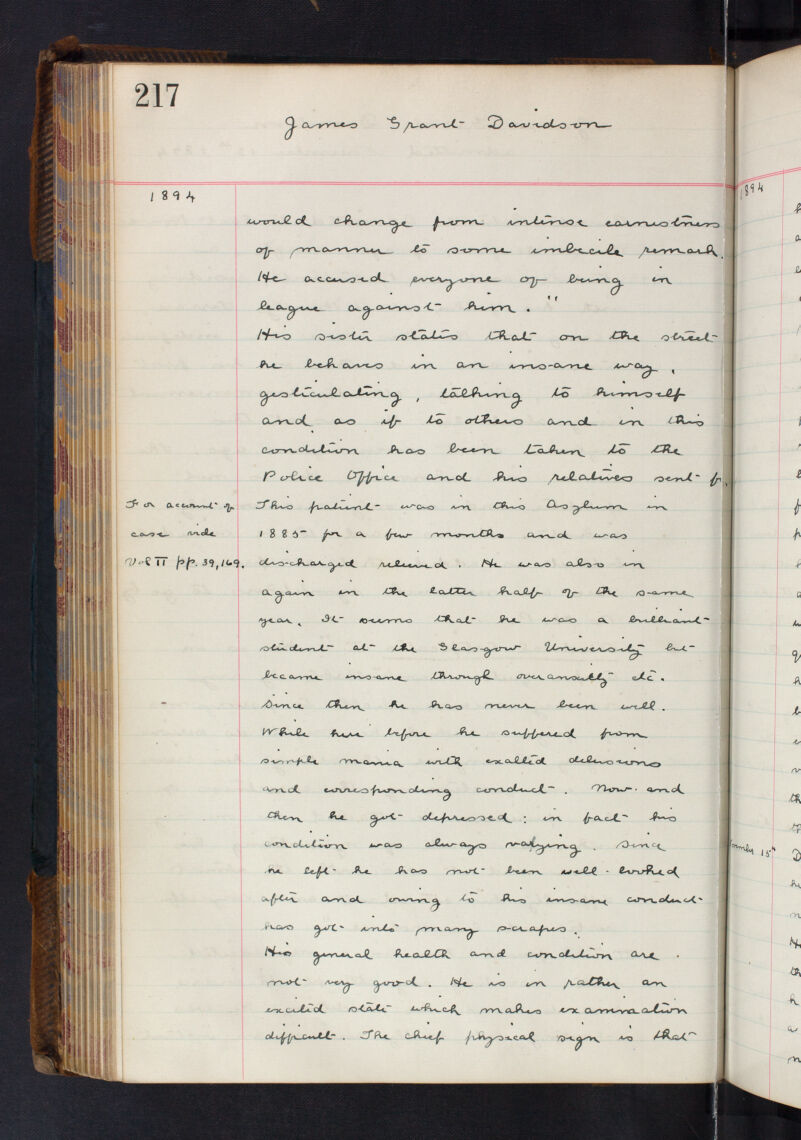 217
James Grant Davidson
1894
would change from intense earnestness
of manner to some imbecile remark.
He accused everyone of being in
league against him."
His sister states that on the street
he behaves in an insane way,
gesticulating, talking to himself
and as if to others and in this
condition has been taken to the
Police Office and his relatives sent f.
For account of
case vide
Vol II pp. 39, 169.
This patient was in this Asylum in
1885 for a few months and was
discharged relieved. He was also in
again in the latter half of the same
year. It seems that he was a brilliant
student at the Glasgow University but
became insane through overanxiety etc.
Since then he has never been well.
While here before he suffered from
simple mania with exalted delusions
and corresponding conduct. Now and
then he got depressed: in fact his
condition was always varying. Since
he left he has not been well looked
after and owing to his insane conduct
has got into many scrapes.
His general health and condition are
not very good. He is in rather an
excited state which makes examination
difficult. The chief physical sign is that
1894
15th